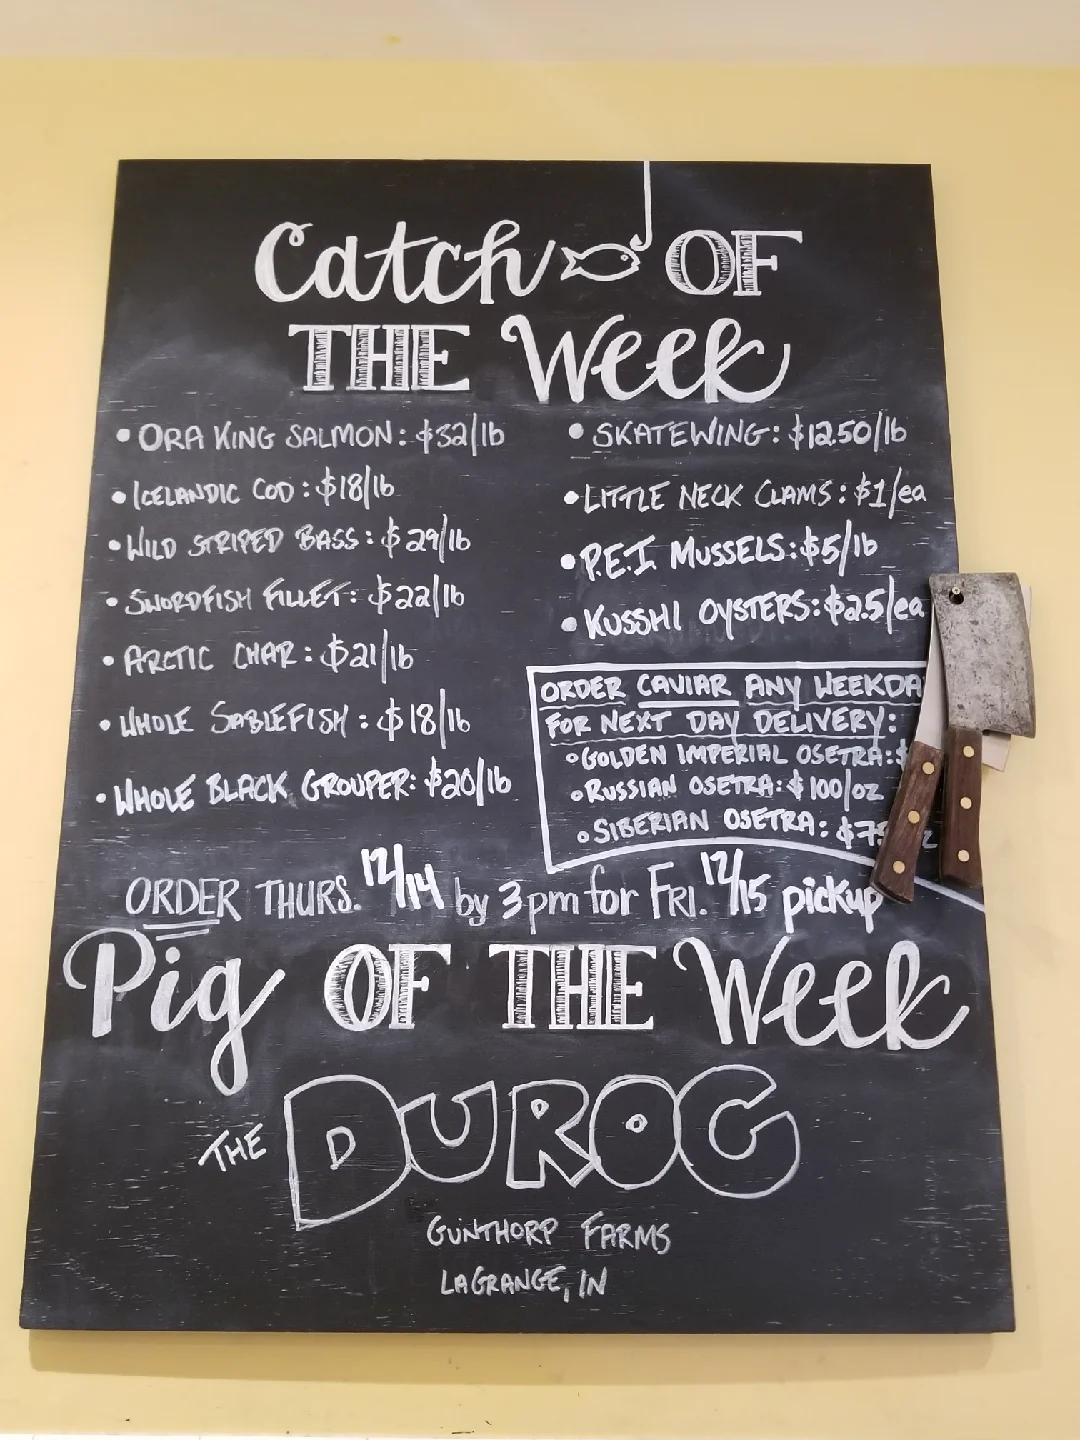 Catch OF
THE Week
• ORA KING SALMON: $32/lb
• ICELANDIC COD: $18/lb
• WILD STRIPED BASS: $29/lb
• SWORDFISH FILLET: $22/lb
• ARCTIC CHAR: $21/lb
• WHOLE SABLEFISH: $18/lb
• WHOLE BLACK GROUPER: $20/lb
• SKATEWING: $12.50/lb
• LITTLE NECK CLAMS: $1/ea
• P.E.I. MUSSELS: $5/lb
• KUSSHI OYSTERS: $2.5/ea
ORDER CAVIAR ANY WEEKDA
FOR NEXT DAY DELIVERY:
• GOLDEN IMPERIAL OSETRA: $
• RUSSIAN OSETRA: $100/oz
• SIBERIAN OSETRA:
ORDER THURS. 12/14 by 3pm for FRI. 12/15 pickup
Pig OF THE Week
THE DUROC
GUNTHORP FARMS
LAGRANGE, IN